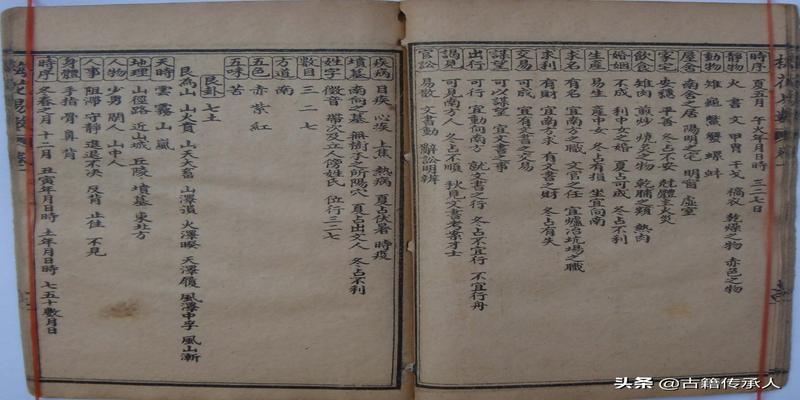 時序 夏五月 午火年月日時 三二七日
靜物 火 書文 甲冑 干戈 槁衣 乾燥之物 赤色之物
動物 雉 龜 鱉 蟹 螺 蚌
屋舍 南舍之居 陽明之宅 明窗 虛室
家宅 安穩 平善 冬占不安 尅體主火災
飲食 雉肉 煎炒 燒炙之物 乾脯之類 熱肉
婚姻 不成 利中女之婚 夏占可成 冬占不利
生產 易生 產中女 冬占有損 坐宜向南
求名 有名 宜南方之職 文官之任 宜爐冶坑場之職
求利 有財 宜南方求 有文書之財 冬占有失
交易 可成 宜有文書之交易
謀望 可以謀望 宜文書之事
出行 可行 宜動向南方 就文書之行 冬占不宜行 不宜行舟
謁見 可見南方人 冬占不順 秋見文書考案才士
官訟 易散 文書動 辭訟明辨
疾病 目疾 心疾 上焦 熱病 夏占伏暑 時疫
墳墓 南向之墓 無樹子之所 陽穴 夏占出文人 冬占不利
姓字 徵音 帶次及立人傍姓氏 位行三二七
數目 三 二 七
方道 南
五色 赤 紫 紅
五味 苦
艮卦 七土
艮為山 山火賁 山天大畜 山澤損 火澤睽 天澤履 風澤中孚 風山漸
天時 雲 霧 山嵐
地理 山徑路 近山城 丘陵 墳墓 東北方
人物 少男 閒人 山中人
人事 阻滯 守靜 進退不決 反背 止住 不見
身體 手指 骨 鼻 背
時序 冬春之月 十二月 丑寅年月日時 土年月日時 七五十數月日
头条 @古籍传承人